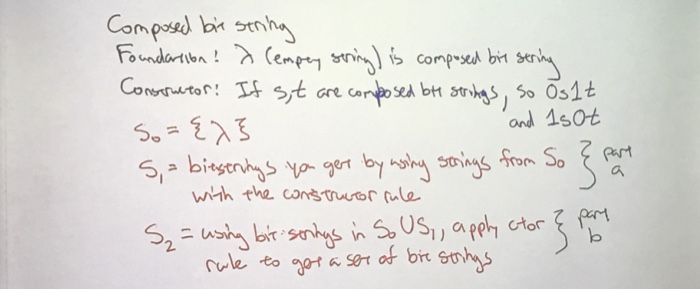 Composed bit string
Foundation: λ (empty string) is composed bit string
Constructor: If s,t are composed bit strings, so 0s1t
and 1s0t
S₀ = {λ}
S₁ = bitstrings you get by using strings from S₀ } part a
with the constructor rule
S₂ = using bit strings in S₀ U S₁, apply ctor } part b
rule to get a set of bit strings